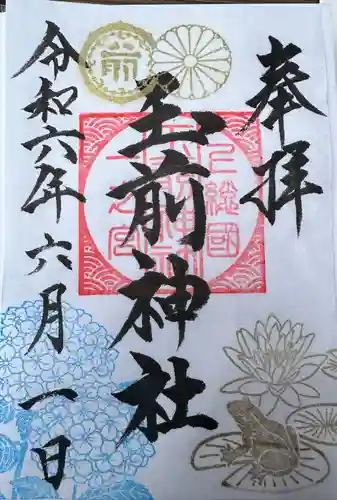 奉拝
上総國
玉前神社
一之宮
前
令和六年六月一日